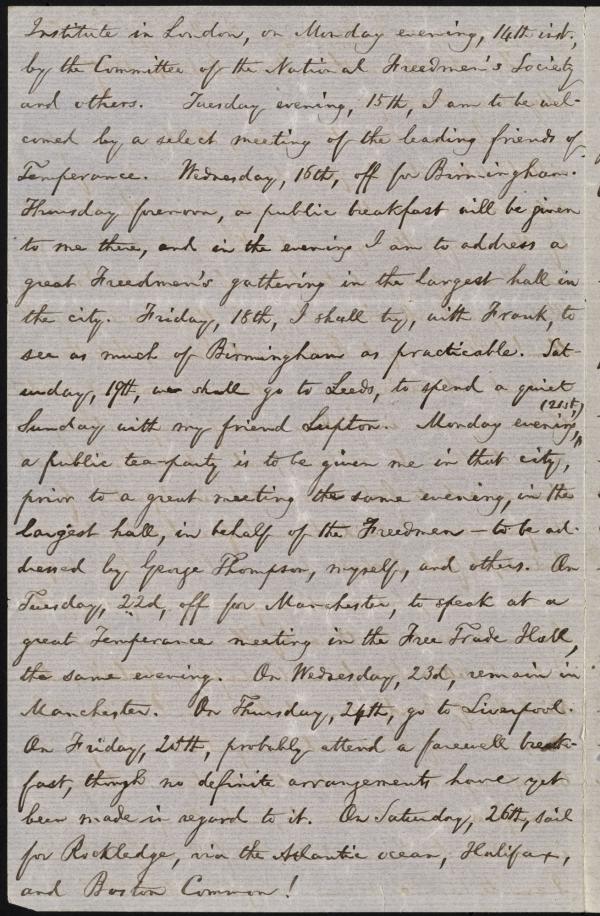 Institute in London, on Monday evening, 14th inst.,
by the Committee of the National Freedmen's Society
and others. Tuesday evening, 15th, I am to be wel-
comed by a select meeting of the leading friends of
Temperance. Wednesday, 16th, off for Birmingham.
Thursday forenoon, a public breakfast will be given
to me there, and in the evening I am to address a
great Freedmen's gathering in the largest hall in
the city. Friday, 18th, I shall try, with Frank, to
see as much of Birmingham as practicable. Sat-
urday, 19th, we shall go to Leeds, to spend a quiet
Sunday with my friend Lupton. Monday evening, (21st,)
a public tea-party is to be given me in that city,
prior to a great meeting the same evening, in the
largest hall, in behalf of the Freedmen — to be ad-
dressed by George Thompson, myself, and others. On
Tuesday, 22d, off for Manchester, to speak at a
great Temperance meeting in the Free Trade Hall,
the same evening. On Wednesday, 23d, remain in
Manchester. On Thursday, 24th, go to Liverpool.
On Friday, 25th, probably attend a farewell break-
fast, though no definite arrangements have yet
been made in regard to it. On Saturday, 26th, sail
for Rockledge, via the Atlantic ocean, Halifax,
and Boston Common!